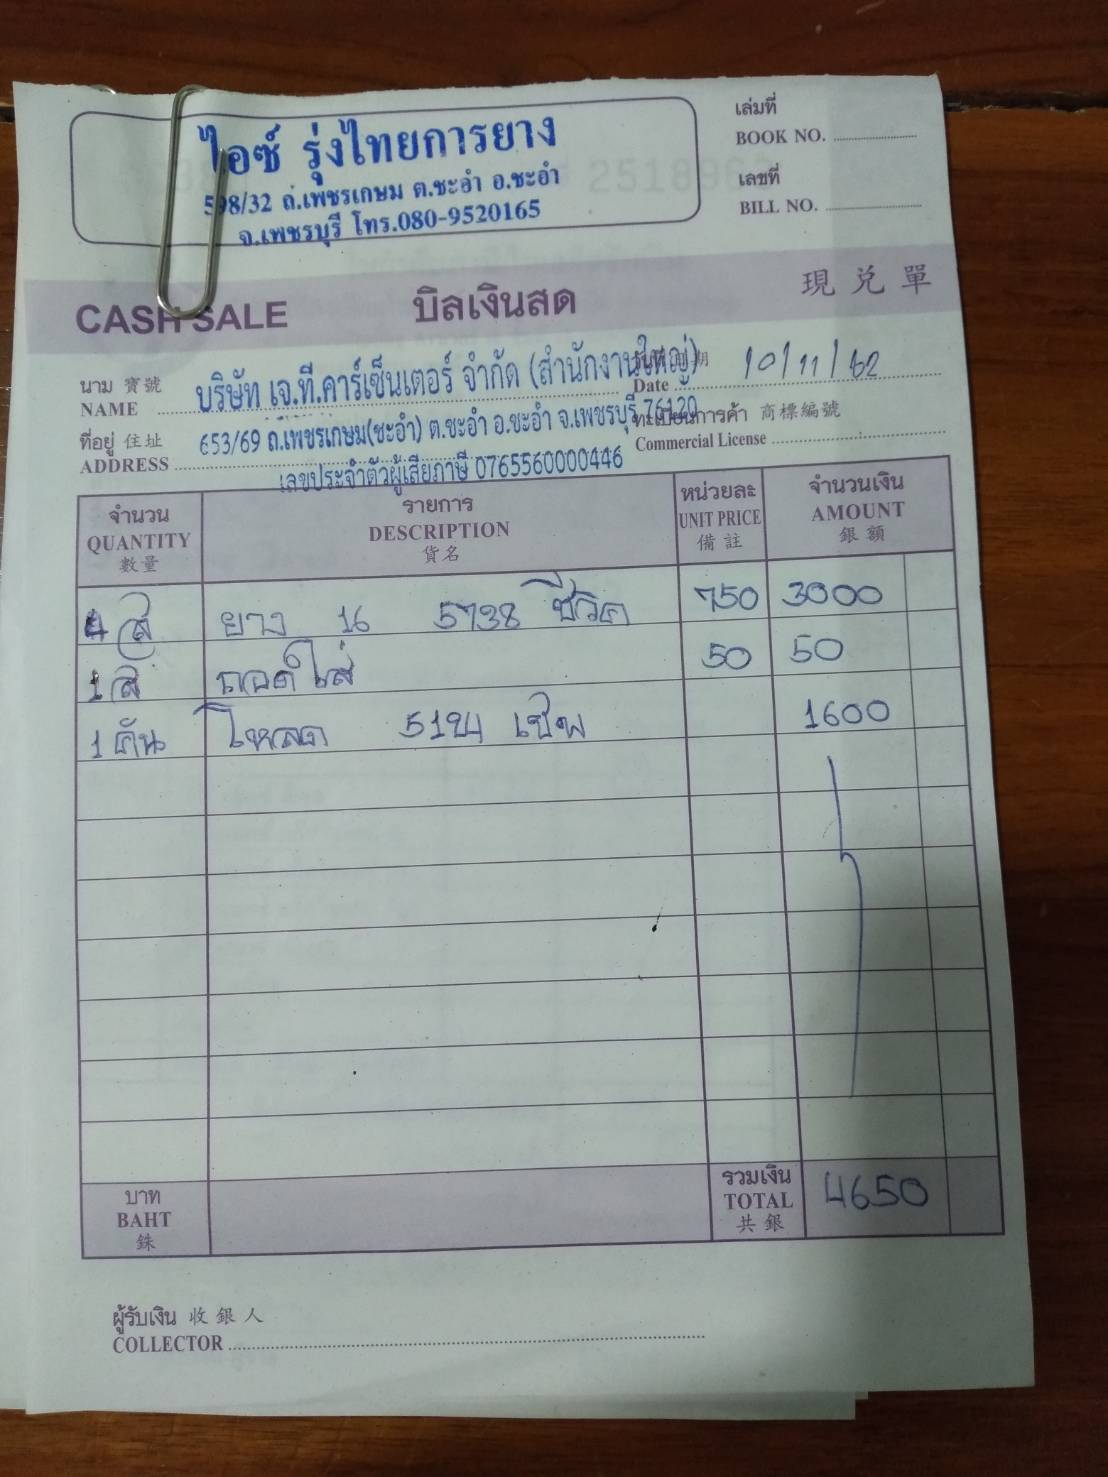 ไอซ์ รุ่งไทยการยาง
598/32 ถ.เพชรเกษม ต.ชะอำ อ.ชะอำ
จ.เพชรบุรี โทร.080-9520165
เล่มที่
BOOK NO.
เลขที่
BILL NO.
CASH SALE บิลเงินสด 現兑單
นาม 寶號
NAME บริษัท เจ.ที.คาร์เซ็นเตอร์ จำกัด (สำนักงานใหญ่)
Date 10/11/62
ที่อยู่ 住址
ADDRESS 653/69 ถ.เพชรเกษม(ชะอำ) ต.ชะอำ อ.ชะอำ จ.เพชรบุรี 76120
เลขประจำตัวผู้เสียภาษี 0765560000446
ทะเบียนการค้า 商標編號
Commercial License
จำนวน รายการ หน่วยละ จำนวนเงิน
QUANTITY DESCRIPTION UNIT PRICE AMOUNT
數量 貨名 備註 銀額
4 ยาง 16 5738 750 3000
1 ถอดใส่ 50 50
1 คัน โหลด 1600
บาท
BAHT
銖
รวมเงิน
TOTAL 4650
共銀
ผู้รับเงิน 收銀人
COLLECTOR